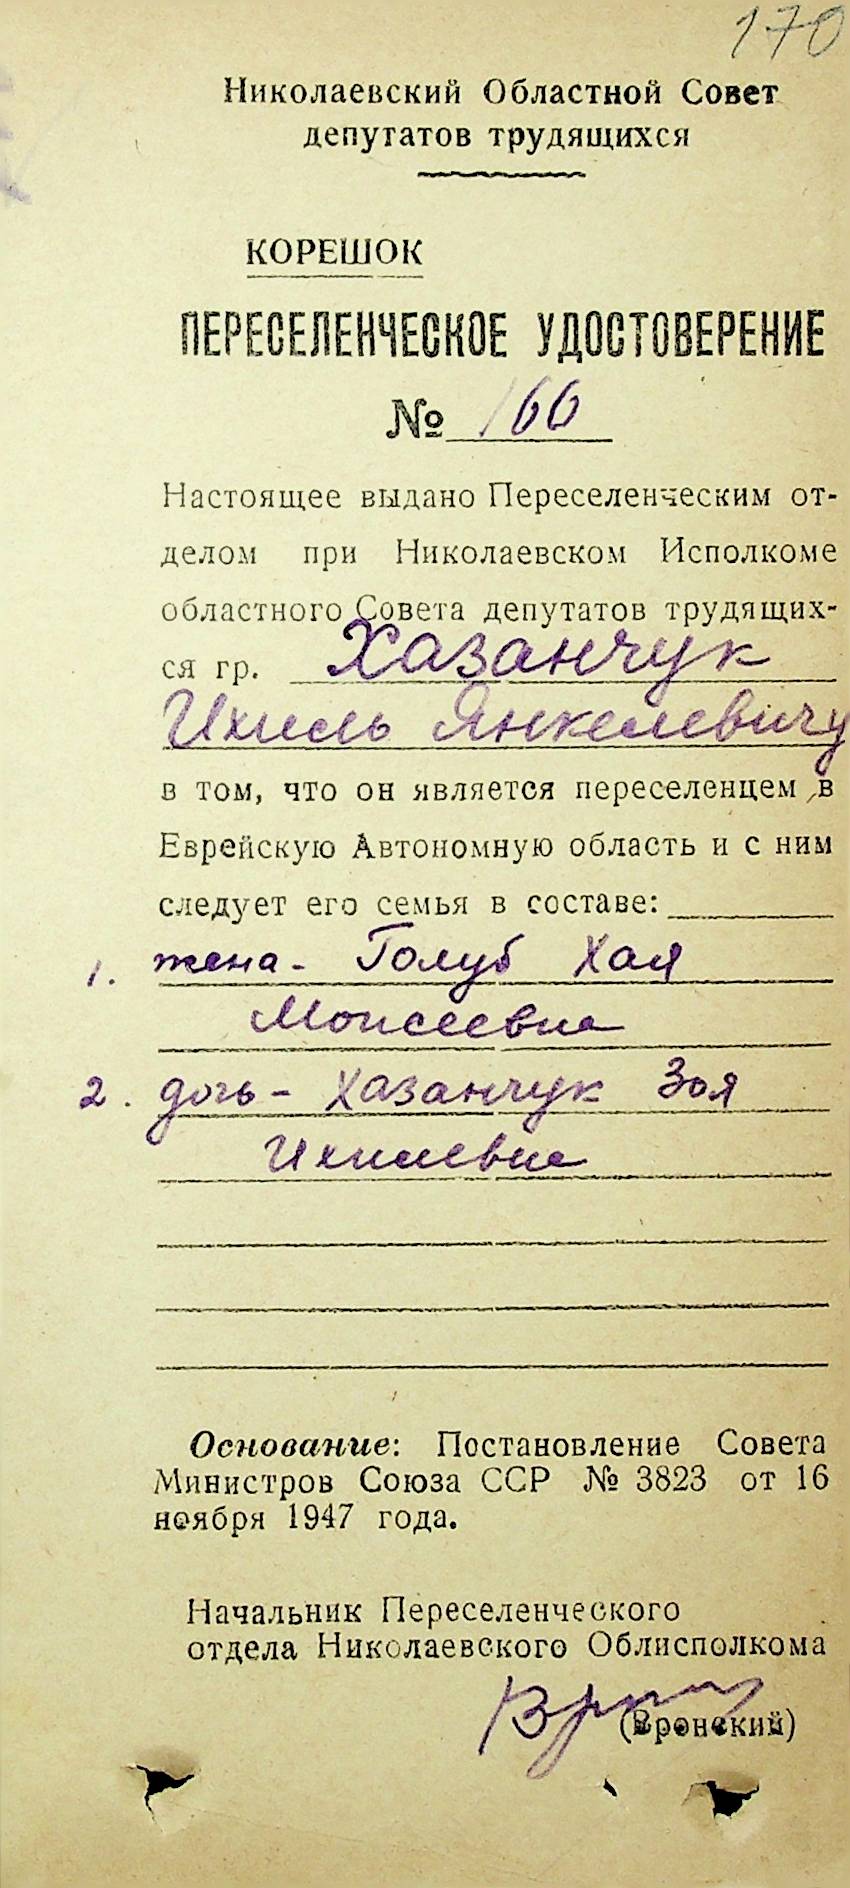 170
Николаевский Областной Совет
депутатов трудящихся
КОРЕШОК
ПЕРЕСЕЛЕНЧЕСКОЕ УДОСТОВЕРЕНИЕ
№ 166
Настоящее выдано Переселенческим от-
делом при Николаевском Исполкоме
областного Совета депутатов трудящих-
ся гр. Хазанчук
Ихиель Янкелевичу
в том, что он является переселенцем в
Еврейскую Автономную область и с ним
следует его семья в составе:
1. жена - Голуб Хая
Моисеевна
2. дочь - Хазанчук Зоя
Ихилевна
Основание: Постановление Совета
Министров Союза ССР № 3823 от 16
ноября 1947 года.
Начальник Переселенческого
отдела Николаевского Облисполкома
(Вронский)